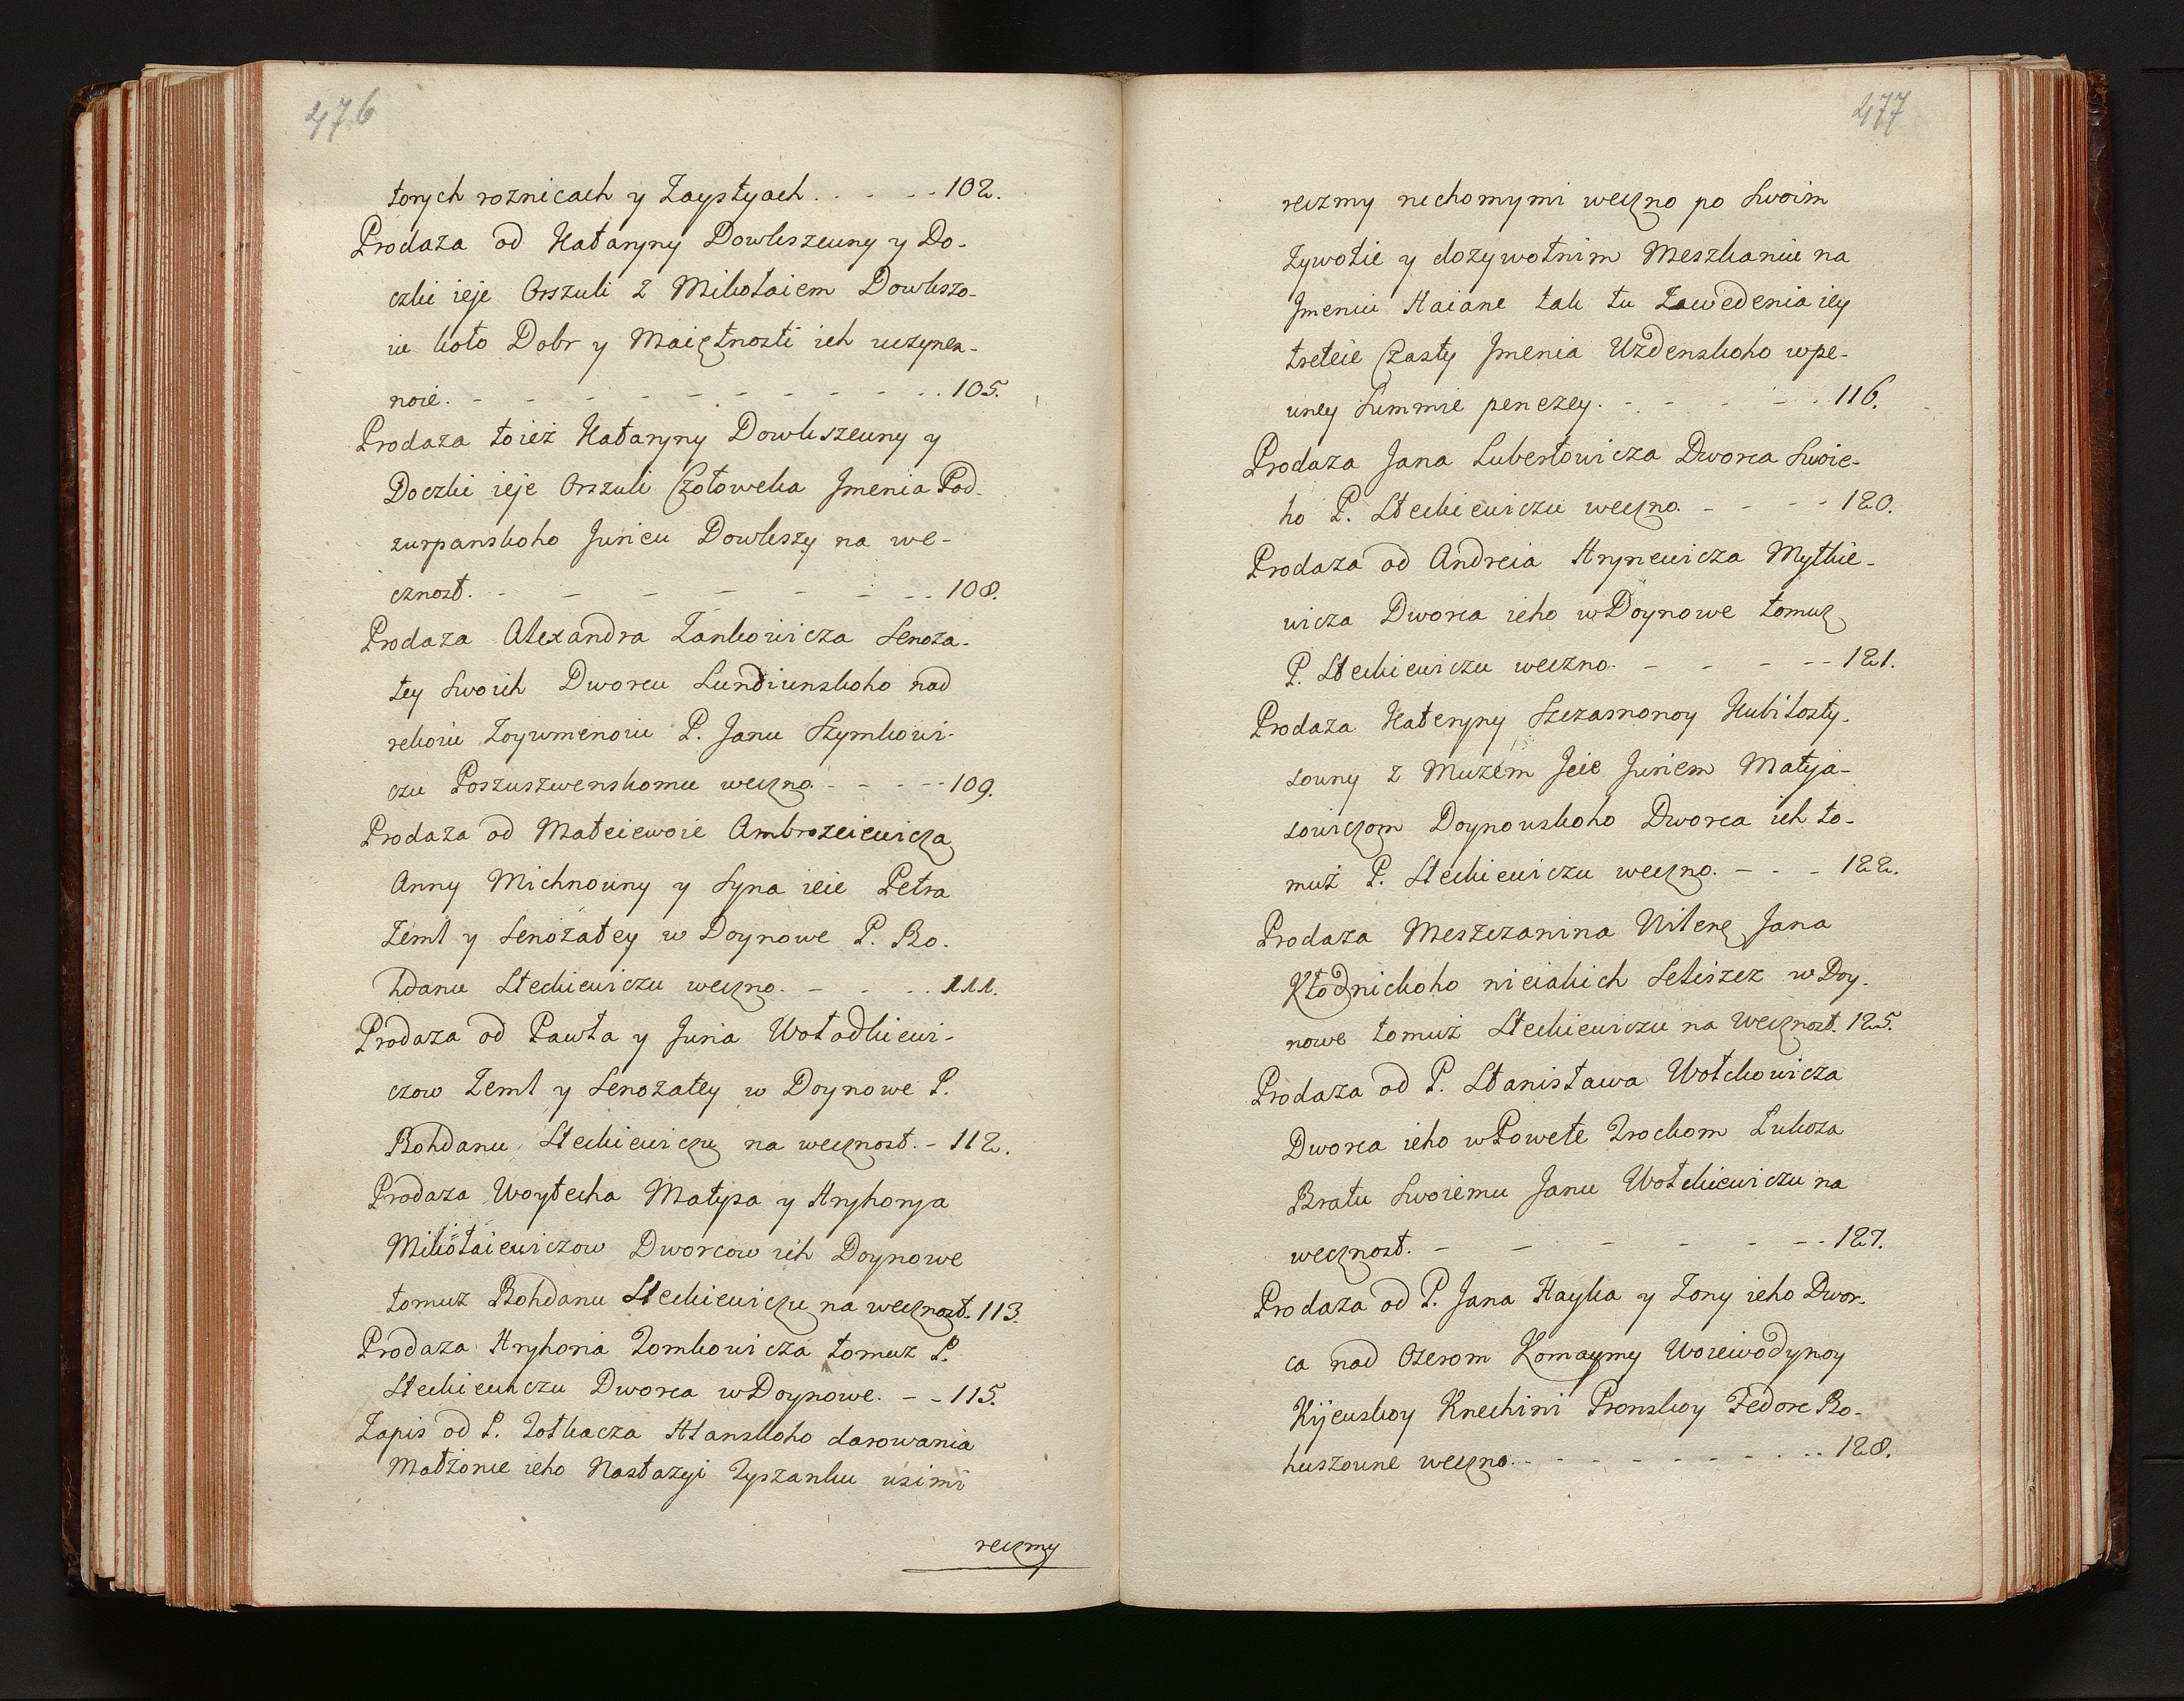 476
torych roznicach y Zaystyach . . . . . 102.
Prodaza od Kataryny Dowkszeuny y Do-
czki ieje Orszuli z Mikołaiem Dowkszo-
iu koło Dobr y Maiętnosti ich uczynen-
noie. - - - - - - - - - - . . 105.
Prodaza toież Kataryny Dowkszeuny y
Doczki ieje Orszuli Człoweka Jmenia Pod-
zurpanskoho Juricu Dowkszy na we-
cznost. - - - - - - . . 108.
Prodaza Alexandra Zankowicza Senoza-
tey Swoich Dworcu Lundiunskoho nad
rekoiu Zoyumenoiu P. Janu Szymkowi-
czu Poszuszwenskomu weczno. - - - - 109.
Prodaza od Mateiewoie Ambrozeiewicza
Anny Michnouny y Syna ieie Petra
Zeml y Senożatey w Doynowe P. Bo-
hdanu Steckiewiczu weczno. - - . . 111.
Prodaza od Pawła y Juria Wotodkiewi-
czow Zeml y Senozatey w Doynowe P.
Bohdanu Steckiewiczu na wecznost. - 112.
Prodaza Woytecha Matysa y Hryhorya
Mikołaiewiczow Dworcow ich Doynowe
tomuz Bohdanu Steckiewiczu na wecznost. 113.
Prodaza Hryhoria Tomkowicza tomuz P.
Steckiewiczu Dworca w Doynowe. - - 115.
Zapis od P. Totkacza Hlanskoho darowania
Małżonce ieho Nastazyi Tyszanku usimi
reczmy
477
reczmy ruchomymi weczno po Swoim
Zywotie y dozywotnim Meszkaniu na
Jmeniu Haiane tak tu Zawedenia iey
treteie Czasty Jmenia Uzdenskoho w pe-
uney Summie penezey. - - - - . 116.
Prodaza Jana Lubertowicza Dworca Swoie-
ho P. Steckiewiczu weczno. - - - - 120.
Prodaza od Andreia Hrynewicza Mytkie-
wicza Dworca ieho w Doynowe tomuz
P. Steckiewiczu weczno. - - - - - 121.
Prodaza Kateryny Szczasnonoy Kubilosty-
souny z Mużem Jeie Juriem Matyja-
sowiczom Doynouskoho Dworca ich to-
muż P. Steckiewiczu weczno. - - - 122.
Prodaza Meszczanina Wilene Jana
Kłodnickoho nieiakich Selisczez w Doy-
nowe tomuż Steckiewiczu na wecznost. 125.
Prodaza od P. Stanisława Wołczkowicza
Dworca ieho w Powete Trockom Łukoza
Bratu Swoiemu Janu Wołczkiewiczu na
wecznost. - - - - - - - 127.
Prodaza od P. Jana Hayka y Zony ieho Dwor-
ca nad Ozerom Komaymy Woiewodynoy
Kijeuskoy Knechini Pronskoy Fedore Bo-
huszoune weczno. - - - - - - - . . 128.